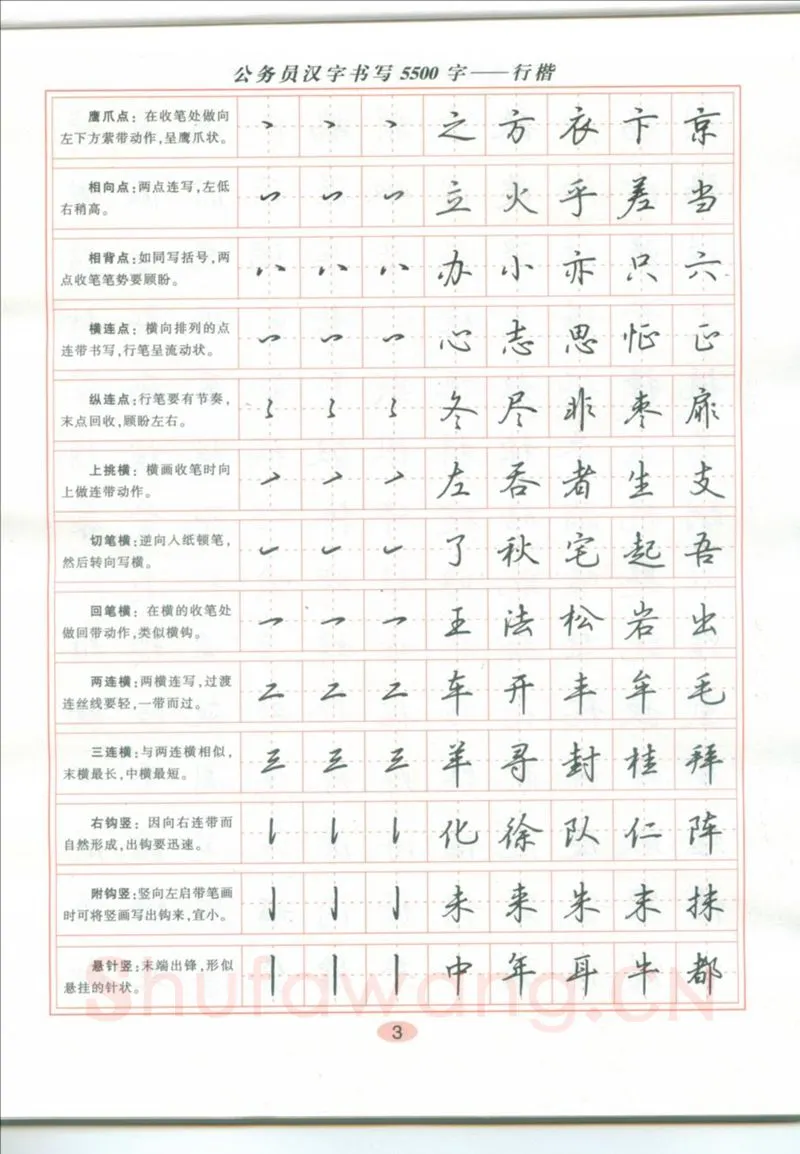 公务员汉字书写5500字——行楷
鹰爪点：在收笔处做向
左下方萦带动作，呈鹰爪状。
丶 丶 丶 之 方 衣 卞 京
相向点：两点连写，左低
右稍高。
立 火 乎 差 当
相背点：如同写括号，两
点收笔笔势要顾盼。
八 八 八 办 小 亦 只 六
横连点：横向排列的点
连带书写，行笔呈流动状。
心 志 思 怔 正
纵连点：行笔要有节奏，
末点回收，顾盼左右。
冬 尽 非 枣 扉
上挑横：横画收笔时向
上做连带动作。
左 吞 者 生 支
切笔横：逆向入纸顿笔，
然后转向写横。
了 秋 宅 起 吾
回笔横：在横的收笔处
做回带动作，类似横钩。
王 法 松 岩 出
两连横：两横连写，过渡
连丝线要轻，一带而过。
二 二 二 车 开 丰 牟 毛
三连横：与两连横相似，
末横最长，中横最短。
三 三 三 羊 寻 封 桂 拜
右钩竖：因向右连带而
自然形成，出钩要迅速。
化 徐 队 仁 阵
附钩竖：竖向左启带笔画
时可将竖画写出钩来，宜小。
亅 亅 亅 未 来 朱 末 抹
悬针竖：末端出锋，形似
悬挂的针状。
丨 丨 丨 中 年 耳 牛 都
Shufawang.CN
3